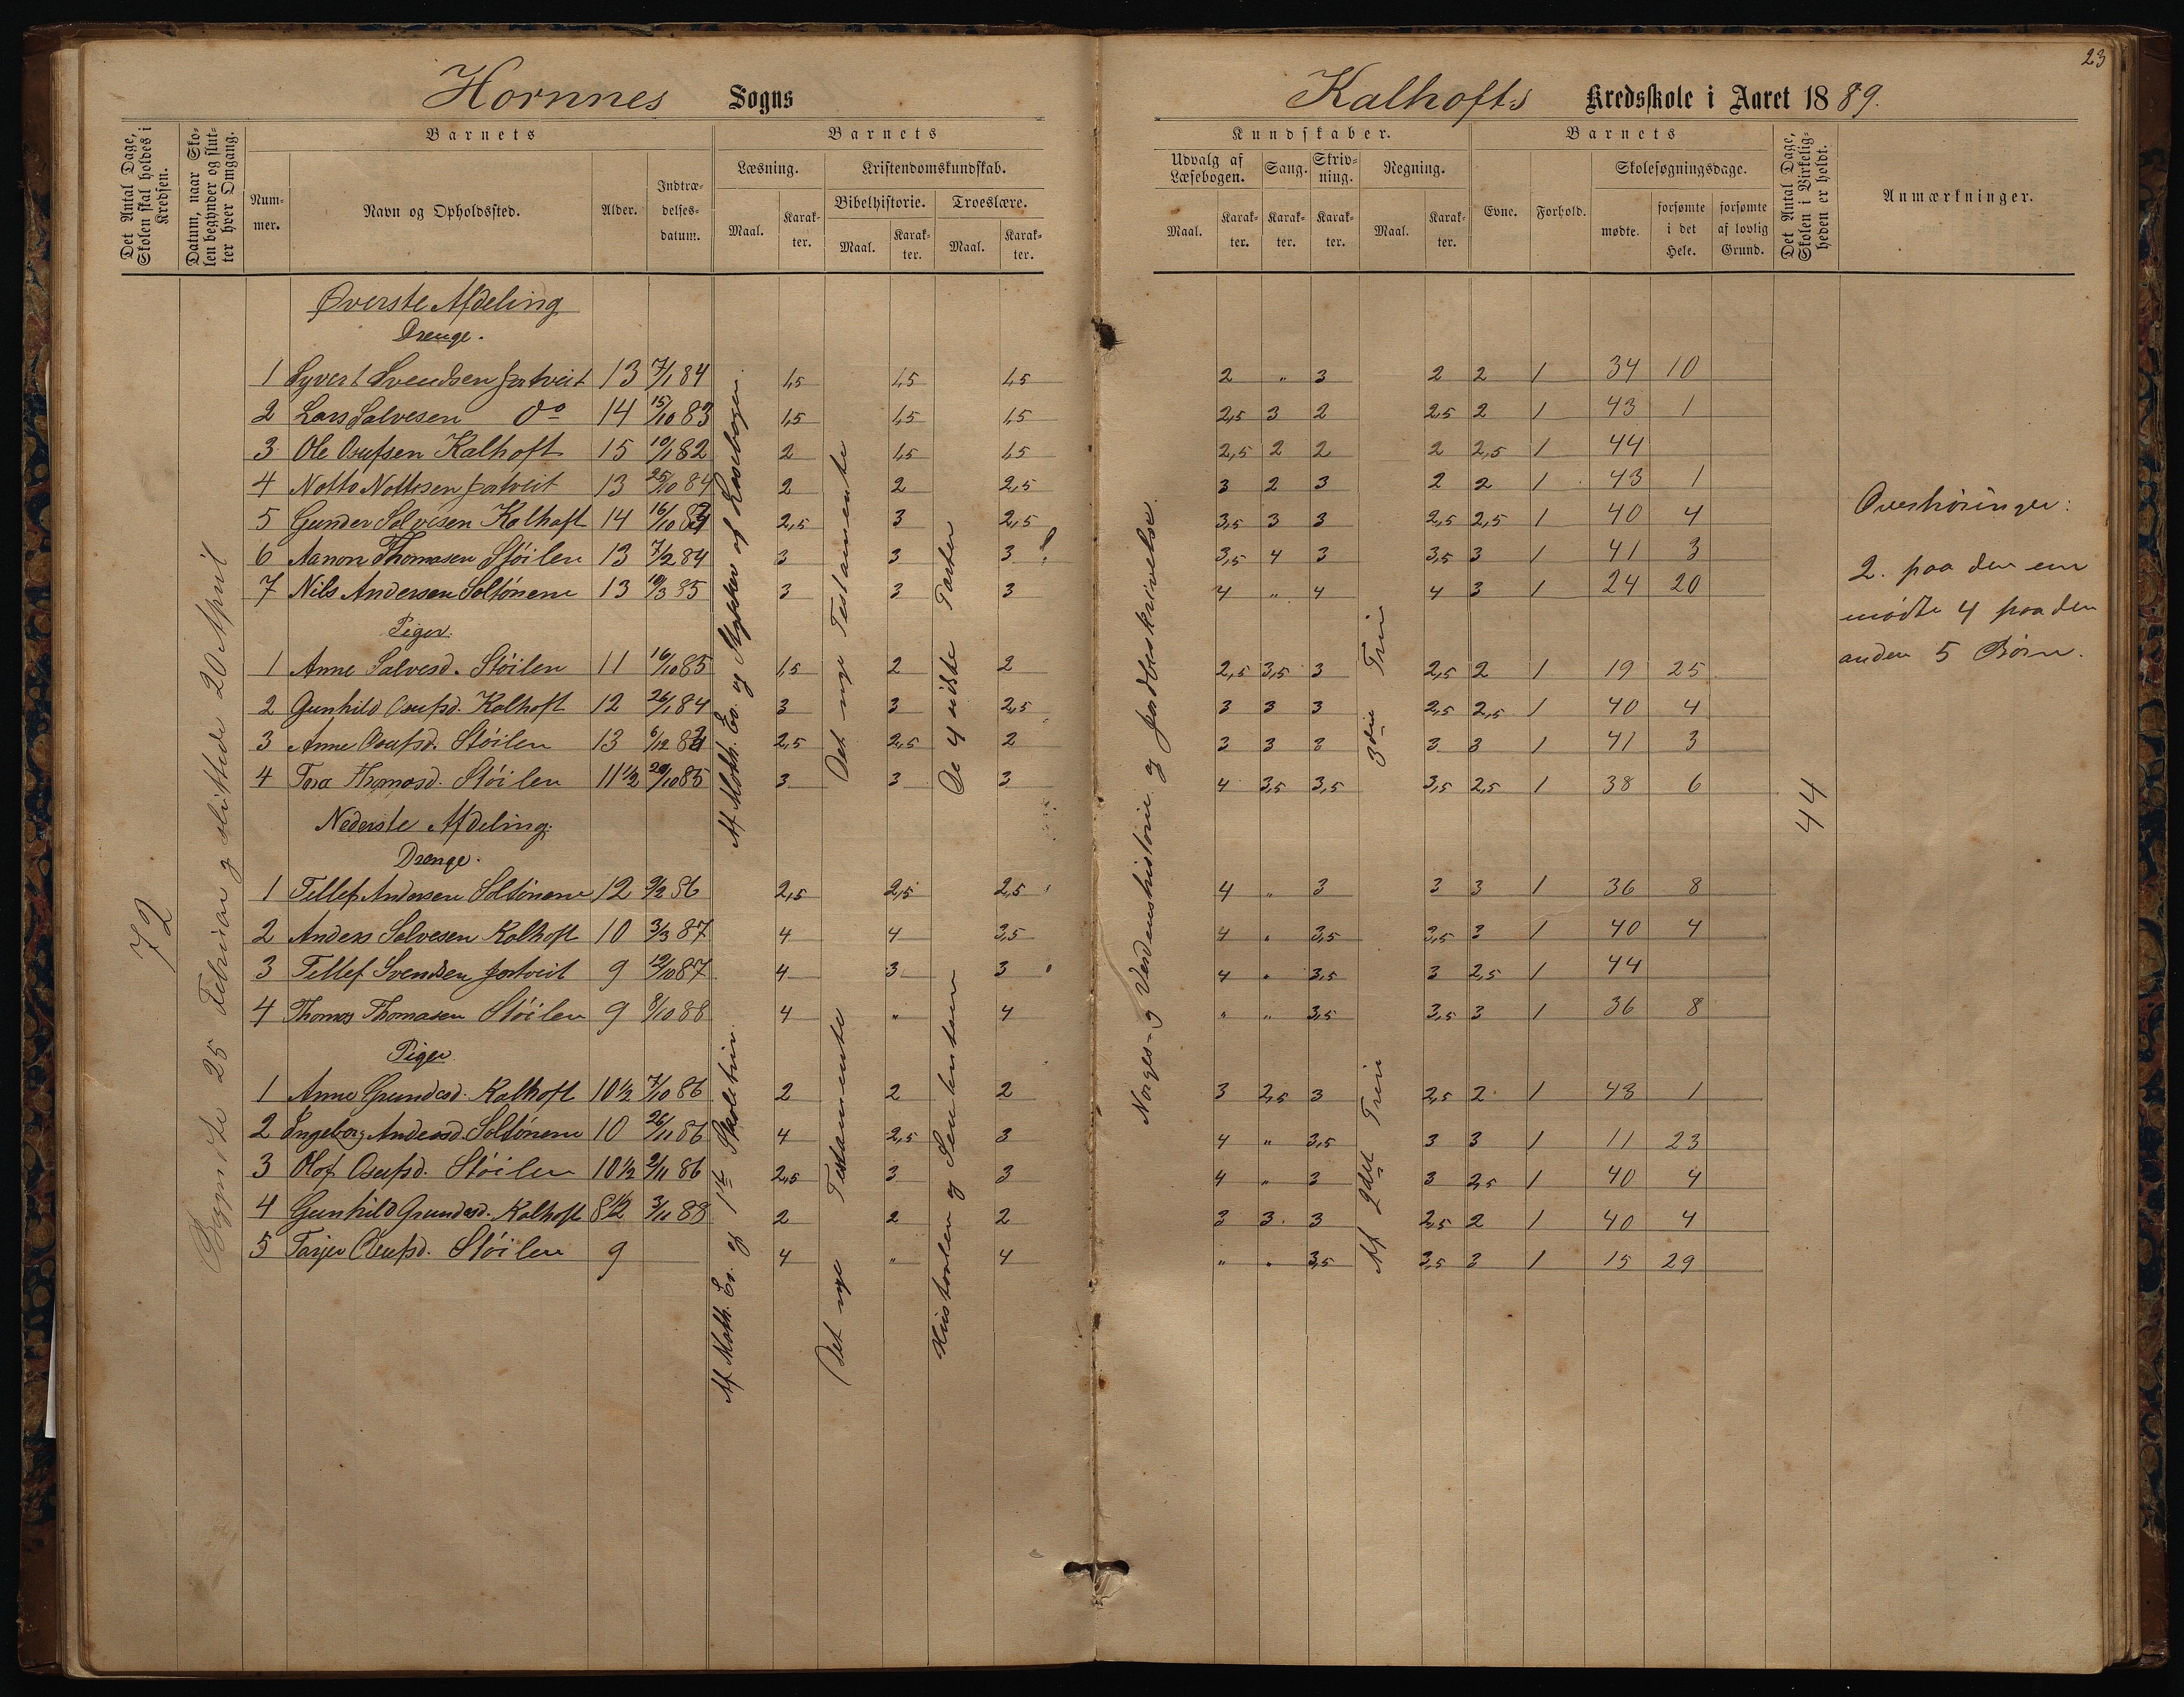 23
Hornnes Sogns
Kalhofts Kredsskole i Aaret 1889.
Det Antal Dage, Skolen skal holdes i Kredsen.
Datum, naar Skolen begynder og slutter hver Omgang.
Barnets
Nummer.
Navn og Opholdssted.
Alder.
Indtrædelsesdatum.
Barnets
Læsning.
Maal.
Karakter.
Kristendomskundskab.
Bibelhistorie.
Maal.
Karakter.
Troeslære.
Maal.
Karakter.
Kundskaber.
Udvalg af Læsebogen.
Maal.
Karakter.
Sang.
Karakter.
Skrivning.
Karakter.
Regning.
Maal.
Karakter.
Barnets
Evne.
Forhold.
Skolesøgningsdage.
mødte.
forsømte i det Hele.
forsømte af lovlig Grund.
Det Antal Dage, Skolen i Virkeligheden er holdt.
Anmærkninger.
72
Begyndte 25 Februar og sluttede 20 April
Øverste Afdeling
Drenge.
1 Syvert Svendsen Jortveit 13 7/1 84 1,5 1,5 1,5 2 " 3 2 2 1 34 10
2 Lars Salvesen Do 14 15/10 83 1,5 1,5 1,5 2,5 3 2 2,5 2 1 43 1
3 Ole Osufsen Kalhoft 15 19/1 82 2 1,5 1,5 2,5 2 2 2 2,5 1 44
4 Notto Nottosen Jortveit 13 25/10 84 2 2 2,5 3 2 3 2 2 1 43 1
5 Gunder Salvesen Kalhoft 14 16/10 83 2,5 3 2,5 3,5 3 3 2,5 2,5 1 40 4
6 Aanon Thomasen Støilen 13 7/2 84 3 3 3 3,5 4 3 3,5 3 1 41 3
7 Nils Andersen Soltønene 13 19/3 85 3 3 3 4 " 4 4 3 1 24 20
Piger.
1 Anne Salvesd. Støilen 11 16/10 85 1,5 2 2 2,5 3,5 3 2,5 2 1 19 25
2 Gunhild Osufsd. Kalhoft 12 26/1 84 3 3 2,5 3 3 3 2,5 2,5 1 40 4
3 Anne Osufsd. Støilen 13 6/12 83 2,5 2,5 2 3 3 3 3 3 1 41 3
4 Tora Thomasd. Støilen 11 1/2 20/10 85 3 3 3 4 3,5 3,5 3,5 2,5 1 38 6
Af Math. Ev. og Stykker af Læsebogen.
Det nye Testamente
De 4 sidste Parter
Norges- og Verdenshistorie og Jordbeskrivelse.
3die Trin
44
Nederste Afdeling.
Drenge.
1 Tellef Andersen Soltønene 12 9/2 86 2,5 2,5 2,5 4 " 3 3 3 1 36 8
2 Anders Salvesen Kalhoft 10 3/3 87 4 4 3,5 4 " 3,5 3,5 3 1 40 4
3 Tellef Svendsen Jortveit 9 19/10 87 4 3 3 4 " 3,5 3 2,5 1 44
4 Thomas Thomasen Støilen 9 8/10 88 4 " 4 " " 3,5 3,5 3 1 36 8
Piger
1 Anne Gundersd. Kalhoft 10 1/2 7/10 86 2 2 2 3 2,5 3 2,5 2 1 43 1
2 Ingeborg Andersd. Soltønene 10 26/11 86 4 2,5 3 4 " 3,5 3 3 1 11 23
3 Olof Osufsd. Støilen 10 1/2 2/11 86 2,5 3 3 4 " 3 3 2,5 1 40 4
4 Gunhild Gundersd. Kalhoft 8 1/2 3/11 88 2 2 2 3 3 3 2,5 2 1 40 4
5 Tarjer Osufsd. Støilen 9 4 " 4 " " 3,5 3,5 3 1 15 29
Af Math. Ev. og 1ste Skoletrin.
Det nye Testamente
Af 2det Trin
Overhøringer:
2. paa den ene
mødte 4 paa den
anden 5 Børn.